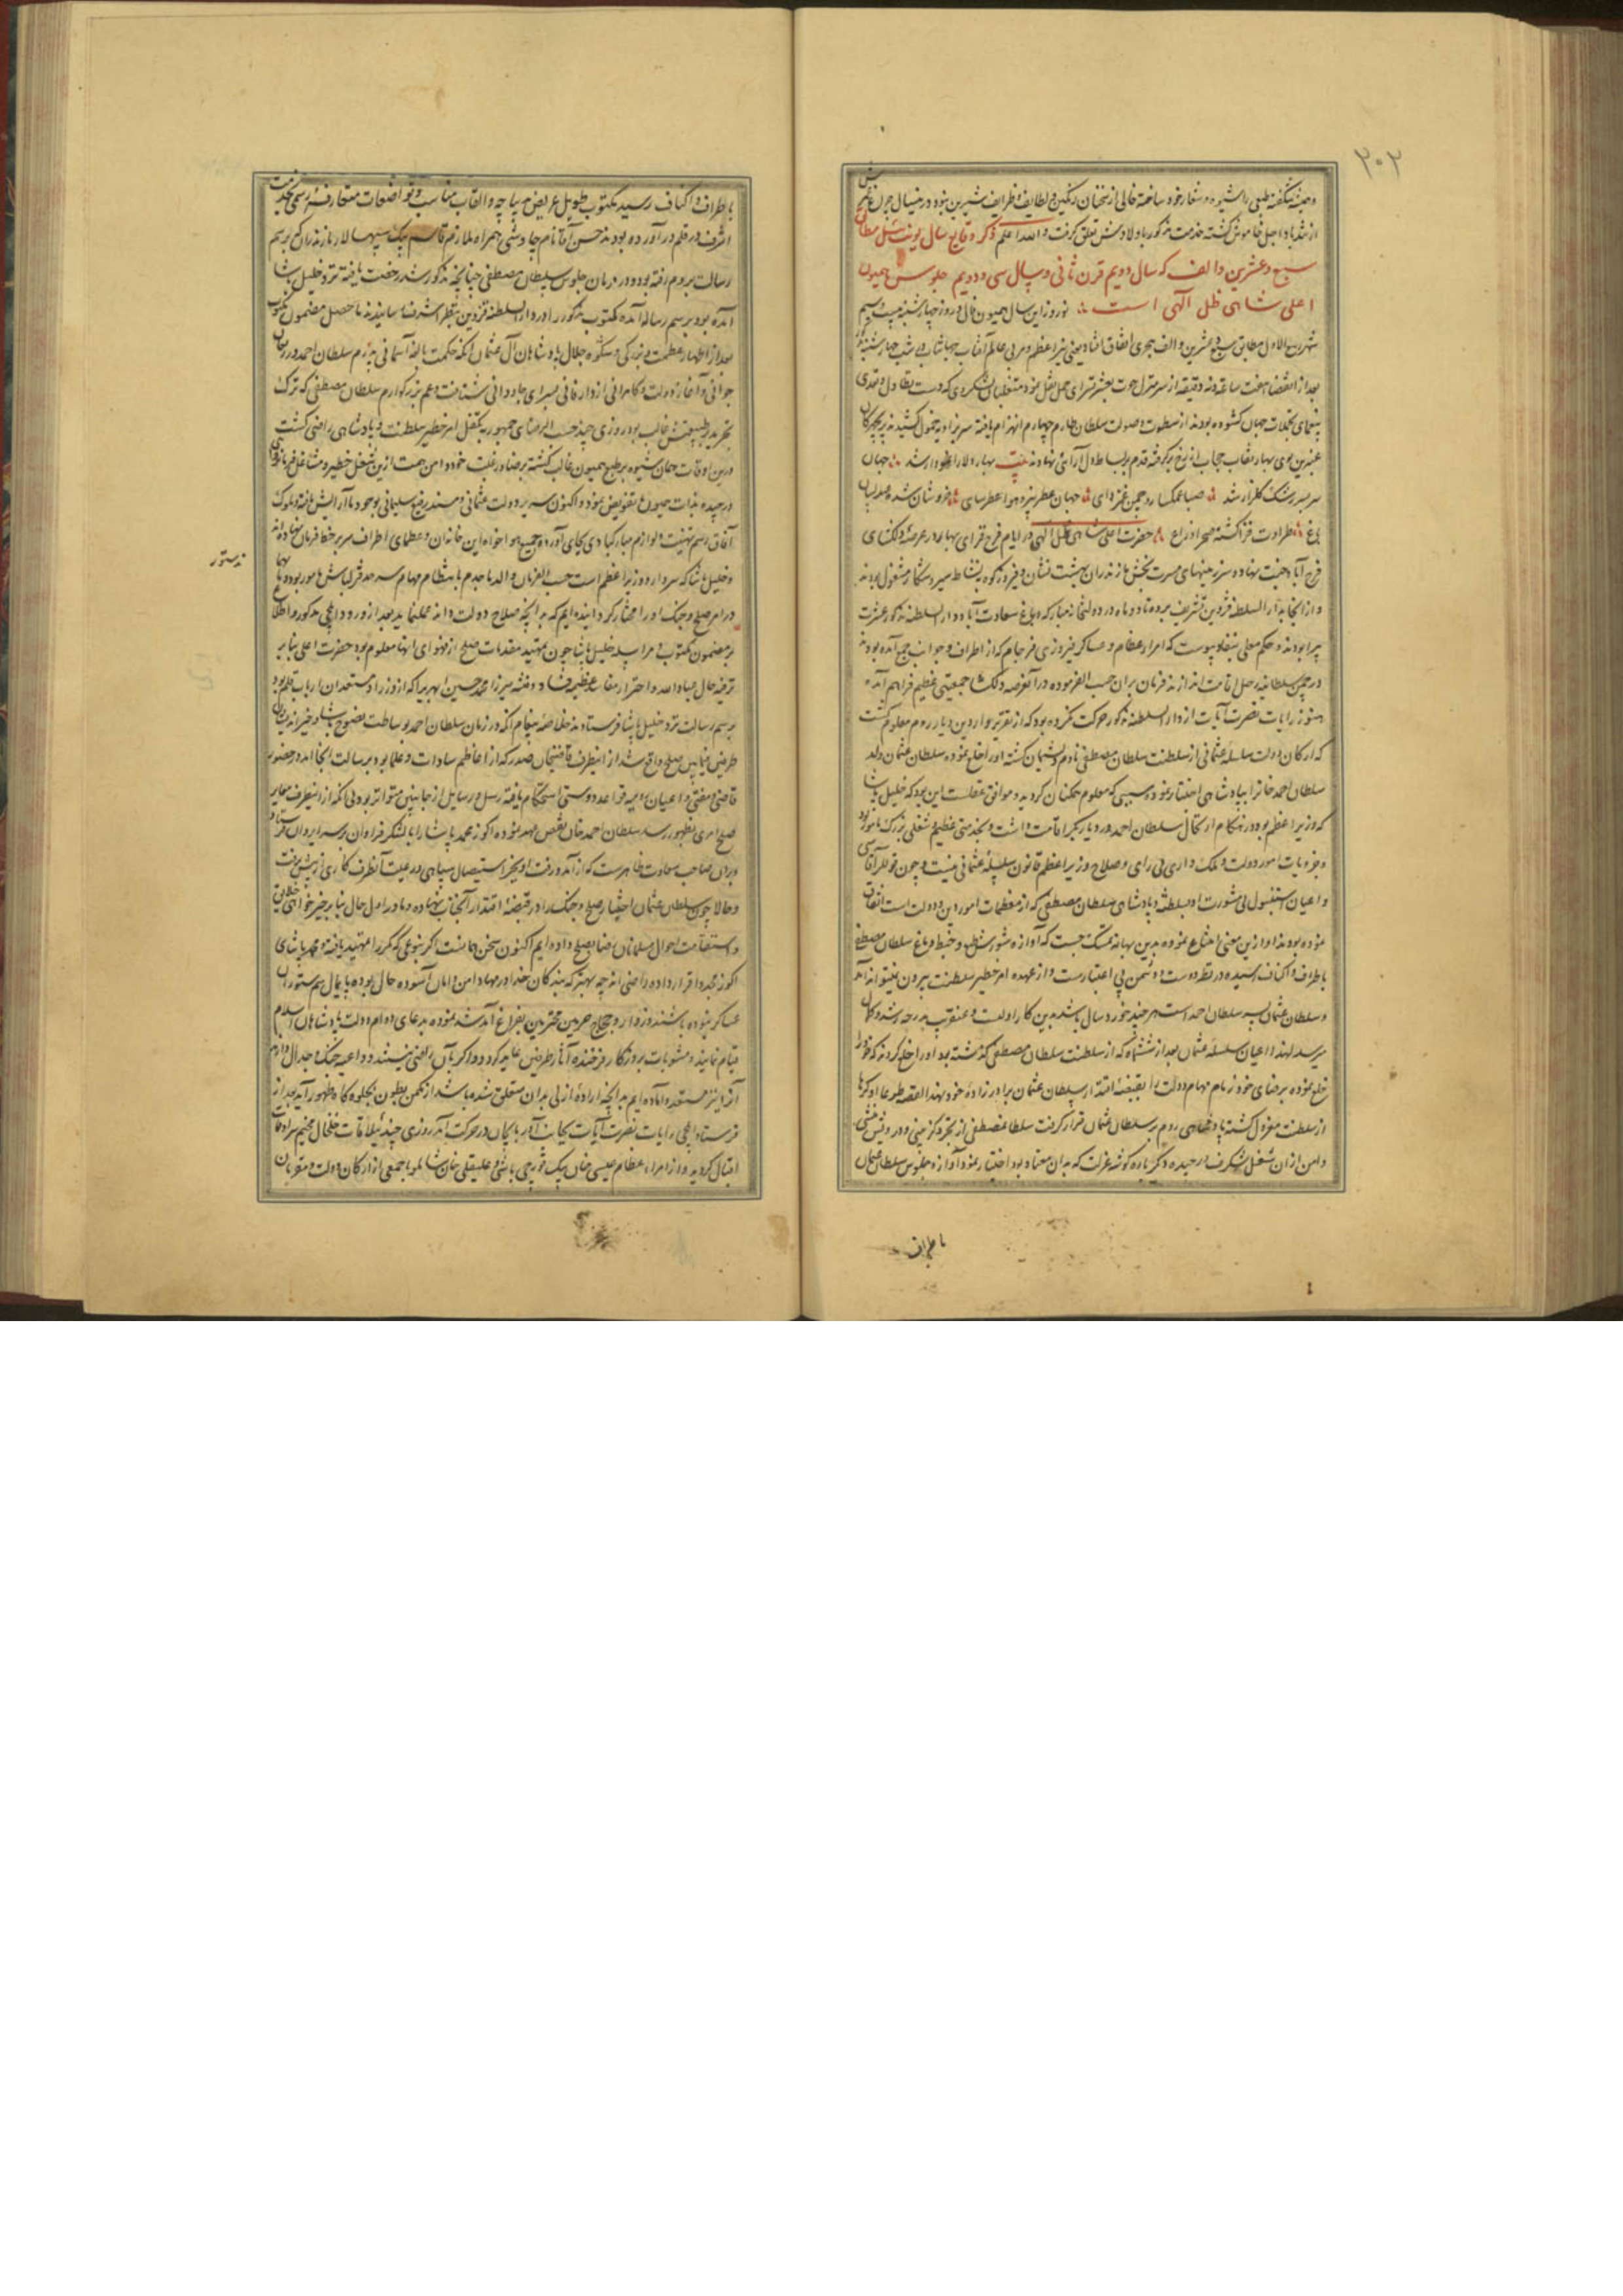 ۳۰۲
و همیشه شکفته طبعی را شیوه و شعار خود ساخته خالی از سخنان رنگین و لطایف و ظرایف شیرین نبود درینسال چون
از تندباد اجل خاموش گشته خدمت مذکور باولادش تعلق گرفت والله اعلم ذکر وقایع سال یونت ئیل مطابق
سبع و عشرین و الف که سال دویم قرن ثانی و سال سی و دویم جلوس همیون
اعلی شاهی ظل الهی است نوروز این سال همیون فال در روز چهارشنبه بیست و سیم
شهر ربیع الاول مطابق سبع و عشرین و الف هجری اتفاق افتاد یعنی نیر اعظم و مربی عالم آفتاب جهانتاب در شب چهارشنبه
بعد از انقضاء هفت ساعت و نه دقیقه از سرمنزل حوت بعشرتسرای حمل نقل نمود متغلبان لشکر دی که دست تطاول و تعدی
بیغمای تجملات جهان گشوده بودند از سطوت و صولت سلطان طارم چهارم انهزام یافته سر بزاویه خمول کشیدند پریچهرکان
عنبرین بوی بهار نقاب حجاب از رخ برگرفته قدم بر بساط دل آرائی نهادند بیت بهار و لاله نمودار شد جهان
سر بسر رشک گلزار شد صبا غمگسار و چمن غمزدای جهان عطربیز و هوا عطرسای خروشان شده بلبلان
باغ طراوت فزا گشته صحرا و راغ حضرت اعلی شاهی ظل الهی در ایام فرح فزای بهار در عرصه دلگشای
فرح آباد جنت نهاد و سرزمینهای مسرت بخش مازندران بهشت نشان و فیروزکوه بنشاط سیر و شکار مشغول بودند
و از آنجا بدار السلطنه قزوین تشریف برده تا دو ماه در دولتخانه مبارکه و باغ سعادت آباد دار السلطنه مذکور عشرت
پیرا بودند و حکم معلی بنفاذ پیوست که امراء عظام و عساکر فیروزی فرجام که از اطراف و جوانب جمع آمده بودند
در چمن سلطانیه رحل اقامت اندازند فرمان بران حسب الفرموده در آن عرصه دلگشا جمعیتی عظیم فراهم آمد
هنوز رایات نصرت آیات از دار السلطنه مذکور حرکت نکرده بود که از تقریر واردین دیار روم معلوم گشت
که ارکان دولت سلسله عثمانی از سلطنت سلطان مصطفی نادم و پشیمان گشته او را خلع نموده سلطان عثمان ولد
سلطان احمد خان را بپادشاهی اختیار نمودند سببی که معلوم همکنان گردید و موافق عقلست این بود که خلیل پاشا
که وزیر اعظم بود در هنگام ارتحال سلطان احمد در دیاربکر اقامت داشت و بخدمتی عظیم و شغلی بزرگ مامور بود
و جزویات امور دولت و ملک داری بی رای و صلاح وزیر اعظم قانون سلسله عثمانی نیست و چون قوللر آقاسی
و اعیان استنبول بی مشورت او بسلطنت و پادشاهی سلطان مصطفی که از معظمات امور دین و دولت است اتفاق
نموده بودند او ازین معنی امتناع نموده بدین بهانه تمسک جست که آوازه شورش طبع و خبط دماغ سلطان مصطفی
باطراف و اکناف رسیده در نظر دوست و دشمن بی اعتبارست و از عهده امر خطیر سلطنت بیرون نمیتواند آمد
و سلطان عثمان پسر سلطان احمد است هر چند خورد سال باشد بدین کار اولیست و عنقریب بدرجه رشد و کمال
میرسد لهذا اعیان سلسله عثمان بعد از ششماه که از سلطنت سلطان مصطفی گذشته بود او را خلع کردند که خود را
خلع نموده برضای خود زمام مهام دولت را بقبضه اقتدار سلطان عثمان برادرزاده خود نهد القصه طوعا او کرها
از سلطنت معزول گشته پادشاهی روم بر سلطان عثمان قرار گرفت سلطان مصطفی از تجرد گزینی و درویش منشی
دامن از آن شغل شگرف درچیده دگر باره گوشه عزلت که بدان معتاد بود اختیار نمود آوازه جلوس سلطان عثمان
باطراف
باطراف و اکناف رسید مکتوب طویل عریض دیباچه و القاب مناسب و تواضعات متعارفه رسمی بخدمت
اشرف در قلم درآورده بودند حسن آقا نام چاوشی همراه ملازم قاسم بیک سپهسالار مازندران که برسم
رسالت بروم رفته بود و در زمان جلوس سلطان مصطفی چنانچه مذکور شد رخصت یافته نزد خلیل پاشا
آمده بود برسم رساله آمده مکتوب مذکور را در دار السلطنه قزوین بنظر اشرف رسانیدند ماحصل مضمون مکتوب
بعد از اظهار عظمت و بزرگی و شکوه و جلال پادشاهان آل عثمان آنکه بحکمت بالغه آسمانی پدرم سلطان احمد در ریعان
جوانی و آغاز دولت و کامرانی از دار فانی بسرای جاودانی شتافت و عم بزرگوارم سلطان مصطفی که ترک و
تجرید بر طبیعتش غالب بود روزی چند حسب الرضای جمهور بتکفل امر خطیر سلطنت و پادشاهی راضی گشت
درین اوقات همان شیوه بر طبع همیون غالب گشته برضا و رغبت خود دامن همت ازین شغل خطیر و مشاغل
درچیده بذات همیون ما تفویض نمود و اکنون سریر دولت عثمانی و مسند رفیع سلیمانی بوجود ما آرایش یافته و ملوک
آفاق رسم تهنیت و لوازم مبارکبادی بجای آورده جمیع هواخواه این خاندان و عظمای اطراف سر بر خط فرمان نهاده اند
و خلیل پاشا که سردار و وزیر اعظم است حسب الفرمان والد ماجدم بانتظام مهام سرحد قزلباش مامور بود
دستور
در امر صلح و جنک او را مختار گردانیده ایم که بدانچه صلاح دولت داند عمل نماید بعد از ورود ایلچی مذکور و اطلاع
بر مضمون مکتوب و مراسله خلیل پاشا چون تمهید مقدمات صلح از فحوای آنها معلوم بود حضرت اعلی بنابر
ترفیه حال عباد الله و احتراز مفاسد عظیمه فساد و فتنه میرزا محمد حسین ابهری را که از وزراء و مستعدان ارباب قلم بود
برسم رسالت نزد خلیل پاشا فرستادند خلاصه پیغام آنکه در زمان سلطان احمد بوساطت نصوح پاشا و خیر اندیشان
طرفین فیمابین صلح واقع شد از اینطرف قاضیخان صدر که از اعاظم سادات و علما بود برسالت آنجا آمد در حضور
قاضی و مفتی و اعیان رومیه قواعد دوستی استحکام یافته رسل و رسایل از جانبین متواتر بود بی آنکه از اینطرف مغایر
صلح امری بظهور رسد سلطان احمد خان نقض عهد نموده اکوز محمد پاشا را با لشکر فراوان بر سر ایروان فرستاد
و بر آن صاحب سعادت ظاهرست که از آمد و رفت او بجز استیصال سپاهی و رعیت آنطرف کاری از پیش نرفت
و حالا چون سلطان عثمان اختیار صلح و جنگ را در قبضه اقتدار آنجناب نهاده و ما در اول حال بنابر خیرخواهی خلایق
و استقامت احوال مسلمانان رضا بصلح داده ایم اکنون سخن همانست اگر بنوعی که مکرر تمهید یافته و محمد پاشای
اکوز مجددا قرار داده راضی اند چه بهتر که بندگان خدا در مهاد امن و امان آسوده حال بوده پایمال سم ستوران
عساکر نبوده باشند و زوار و حجاج حرمین محترمین بفراغ آمد شد نموده بدعای دوام دولت پادشاهان اسلام
قیام نمایند و مثوبات بروزگار فرخنده آثار طرفین عاید گردد و اگر بآن راضی نیستند و داعیه جنگ و جدال دارند
آنرا نیز مستعد و آماده ایم بدانچه اراده ازلی بدان متعلق شده باشد از مکمن بطون بجلوه گاه ظهور آید بعد از
فرستادن ایلچی رایات نصرت آیات بجانب آذربایجان در حرکت آمد روزی چند ییلاقات خلخال مخیم سرادقات
اقبال گردید و از امراء عظام عیسی خان بیک قورچی باشی و علیقلی خان شاملو با جمعی از ارکان دولت و مقربان